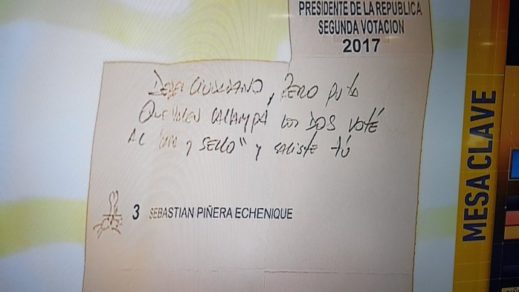 PRESIDENTE DE LA REPUBLICA
SEGUNDA VOTACION
2017
DEBER CIUDADANO, PERO puta
QUE VALEN CALLAMPA LOS DOS VOTÉ
AL "CARA y SELLO" y SALISTE TÚ
3 SEBASTIAN PIÑERA ECHENIQUE
MESA CLAVE